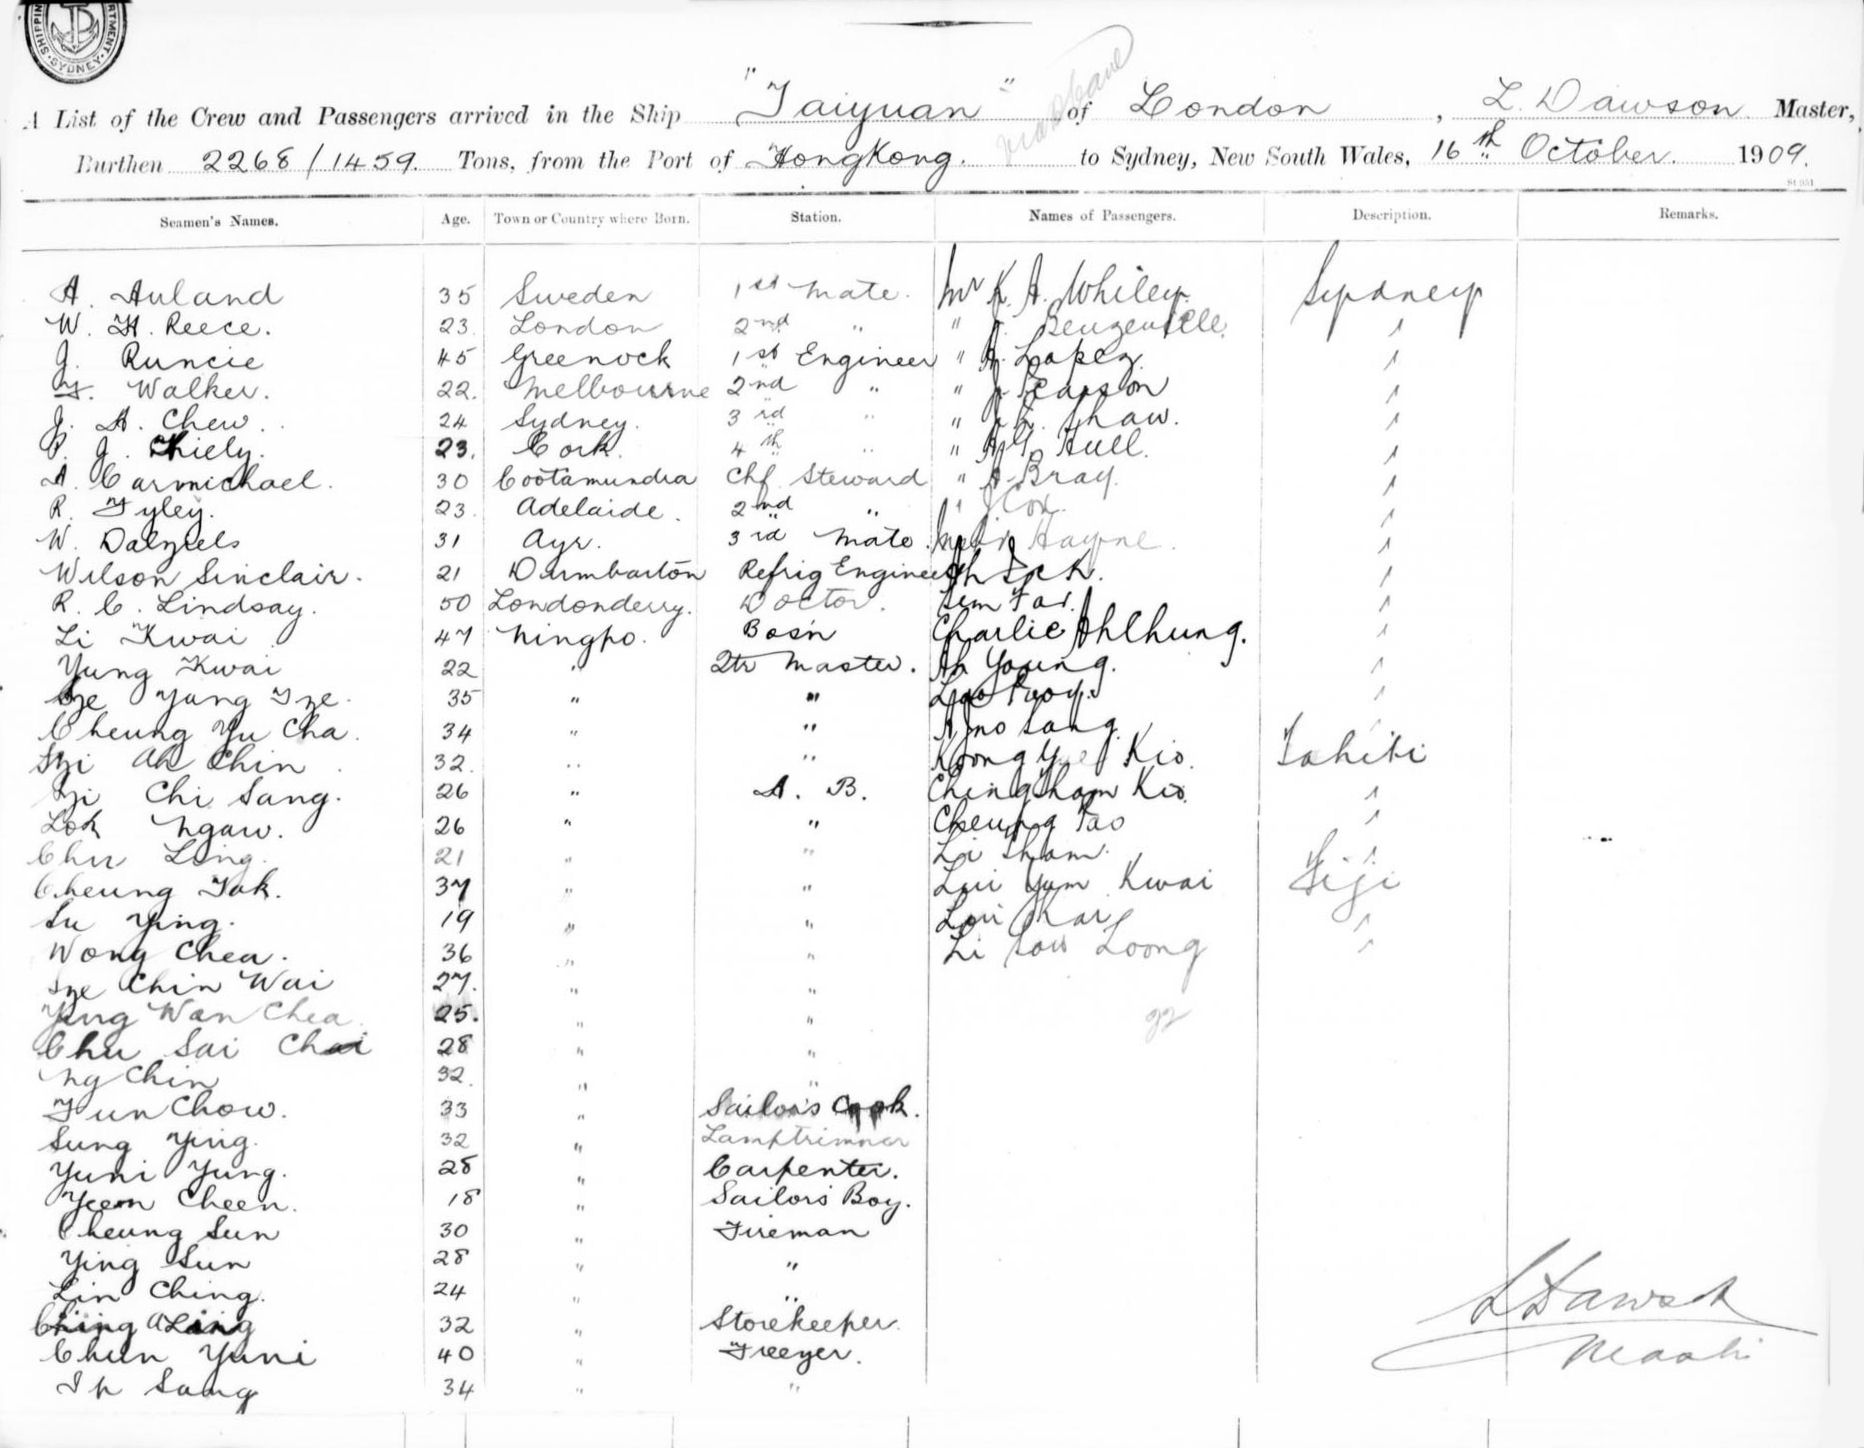 SHIPPING DEPARTMENT · SYDNEY ·
A List of the Crew and Passengers arrived in the Ship "Taiyuan" of London, L. Dawson Master,
Burthen 2268/1459. Tons, from the Port of HongKong. to Sydney, New South Wales, 16th October. 1909.
Seamen's Names. Age. Town or Country where Born. Station. Names of Passengers. Description. Remarks.
A. Auland 35 Sweden 1st Mate. Mr K. A. Whiley. Sydney
W. H. Reece. 23 London 2nd " " Beuzeville. "
J. Runcie 45 Greenock 1st Engineer " A. Lopez "
Walker. 22. Melbourne 2nd " " J. Pearson "
J. A. Chew. 24 Sydney. 3rd " " Shaw. "
P. J. Kiely. 23. Cork. 4th " " Hull. "
A. Carmichael. 30 Cootamundra Chf Steward " A. Bray. "
R. Tyley. 23. Adelaide. 2nd " " J Cox. "
W. Dalziels 31 Ayr. 3rd Mate. Hayne. "
Wilson Sinclair. 21 Dumbarton Refrig Engineer "
R. C. Lindsay. 50 Londonderry. Doctor. Sem Fat. "
Li Kwai 47 Ningpo. Bosn Charlie Ahlhung. "
Yung Kwai 22 " Qtr Master. Ah Young. "
Sze Yang Tze. 35 " " "
Cheung Yu Cha. 34 " "
Szi Ah Chin 32. " " Kio. Tahiti
Chi Sang. 26 " A. B. Ching Sham Kio. "
Lok Ngaw. 26 " " Cheung Tao "
Chu Ling. 21 " " Li Sham. "
Cheung Tak. 37 " " Lui Yum Kwai Fiji
Su Ying. 19 " " "
Wong Chea. 36 " " Li Sow Loong "
Sze Chin Wai 27. " "
Ying Wan Chea. 25. " " 22
Chu Sai Chai 28 " "
Ng Chin 32. " "
Fun Chow. 33 " Sailors Cook.
Sung Ying. 32 " Lamptrimmer
Yuni Yung. 28 " Carpenter.
Yeem Cheen. 18 " Sailors Boy.
Cheung Sun 30 " Fireman
Ying Sun 28 " "
Lin Ching. 24 " "
Ching ALing 32 " Storekeeper.
Chun Yuni 40 " Freeyer.
Ip Sang 34 " "
L Dawson
Master